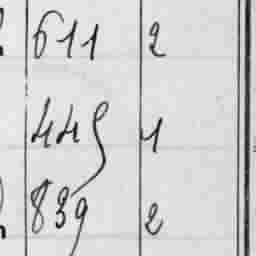 611 2
449 1
839 2